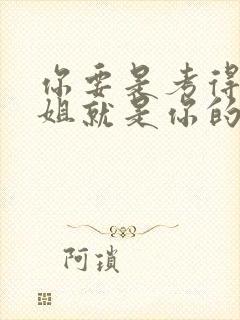 你要是考得
姐就是你的
阿琐